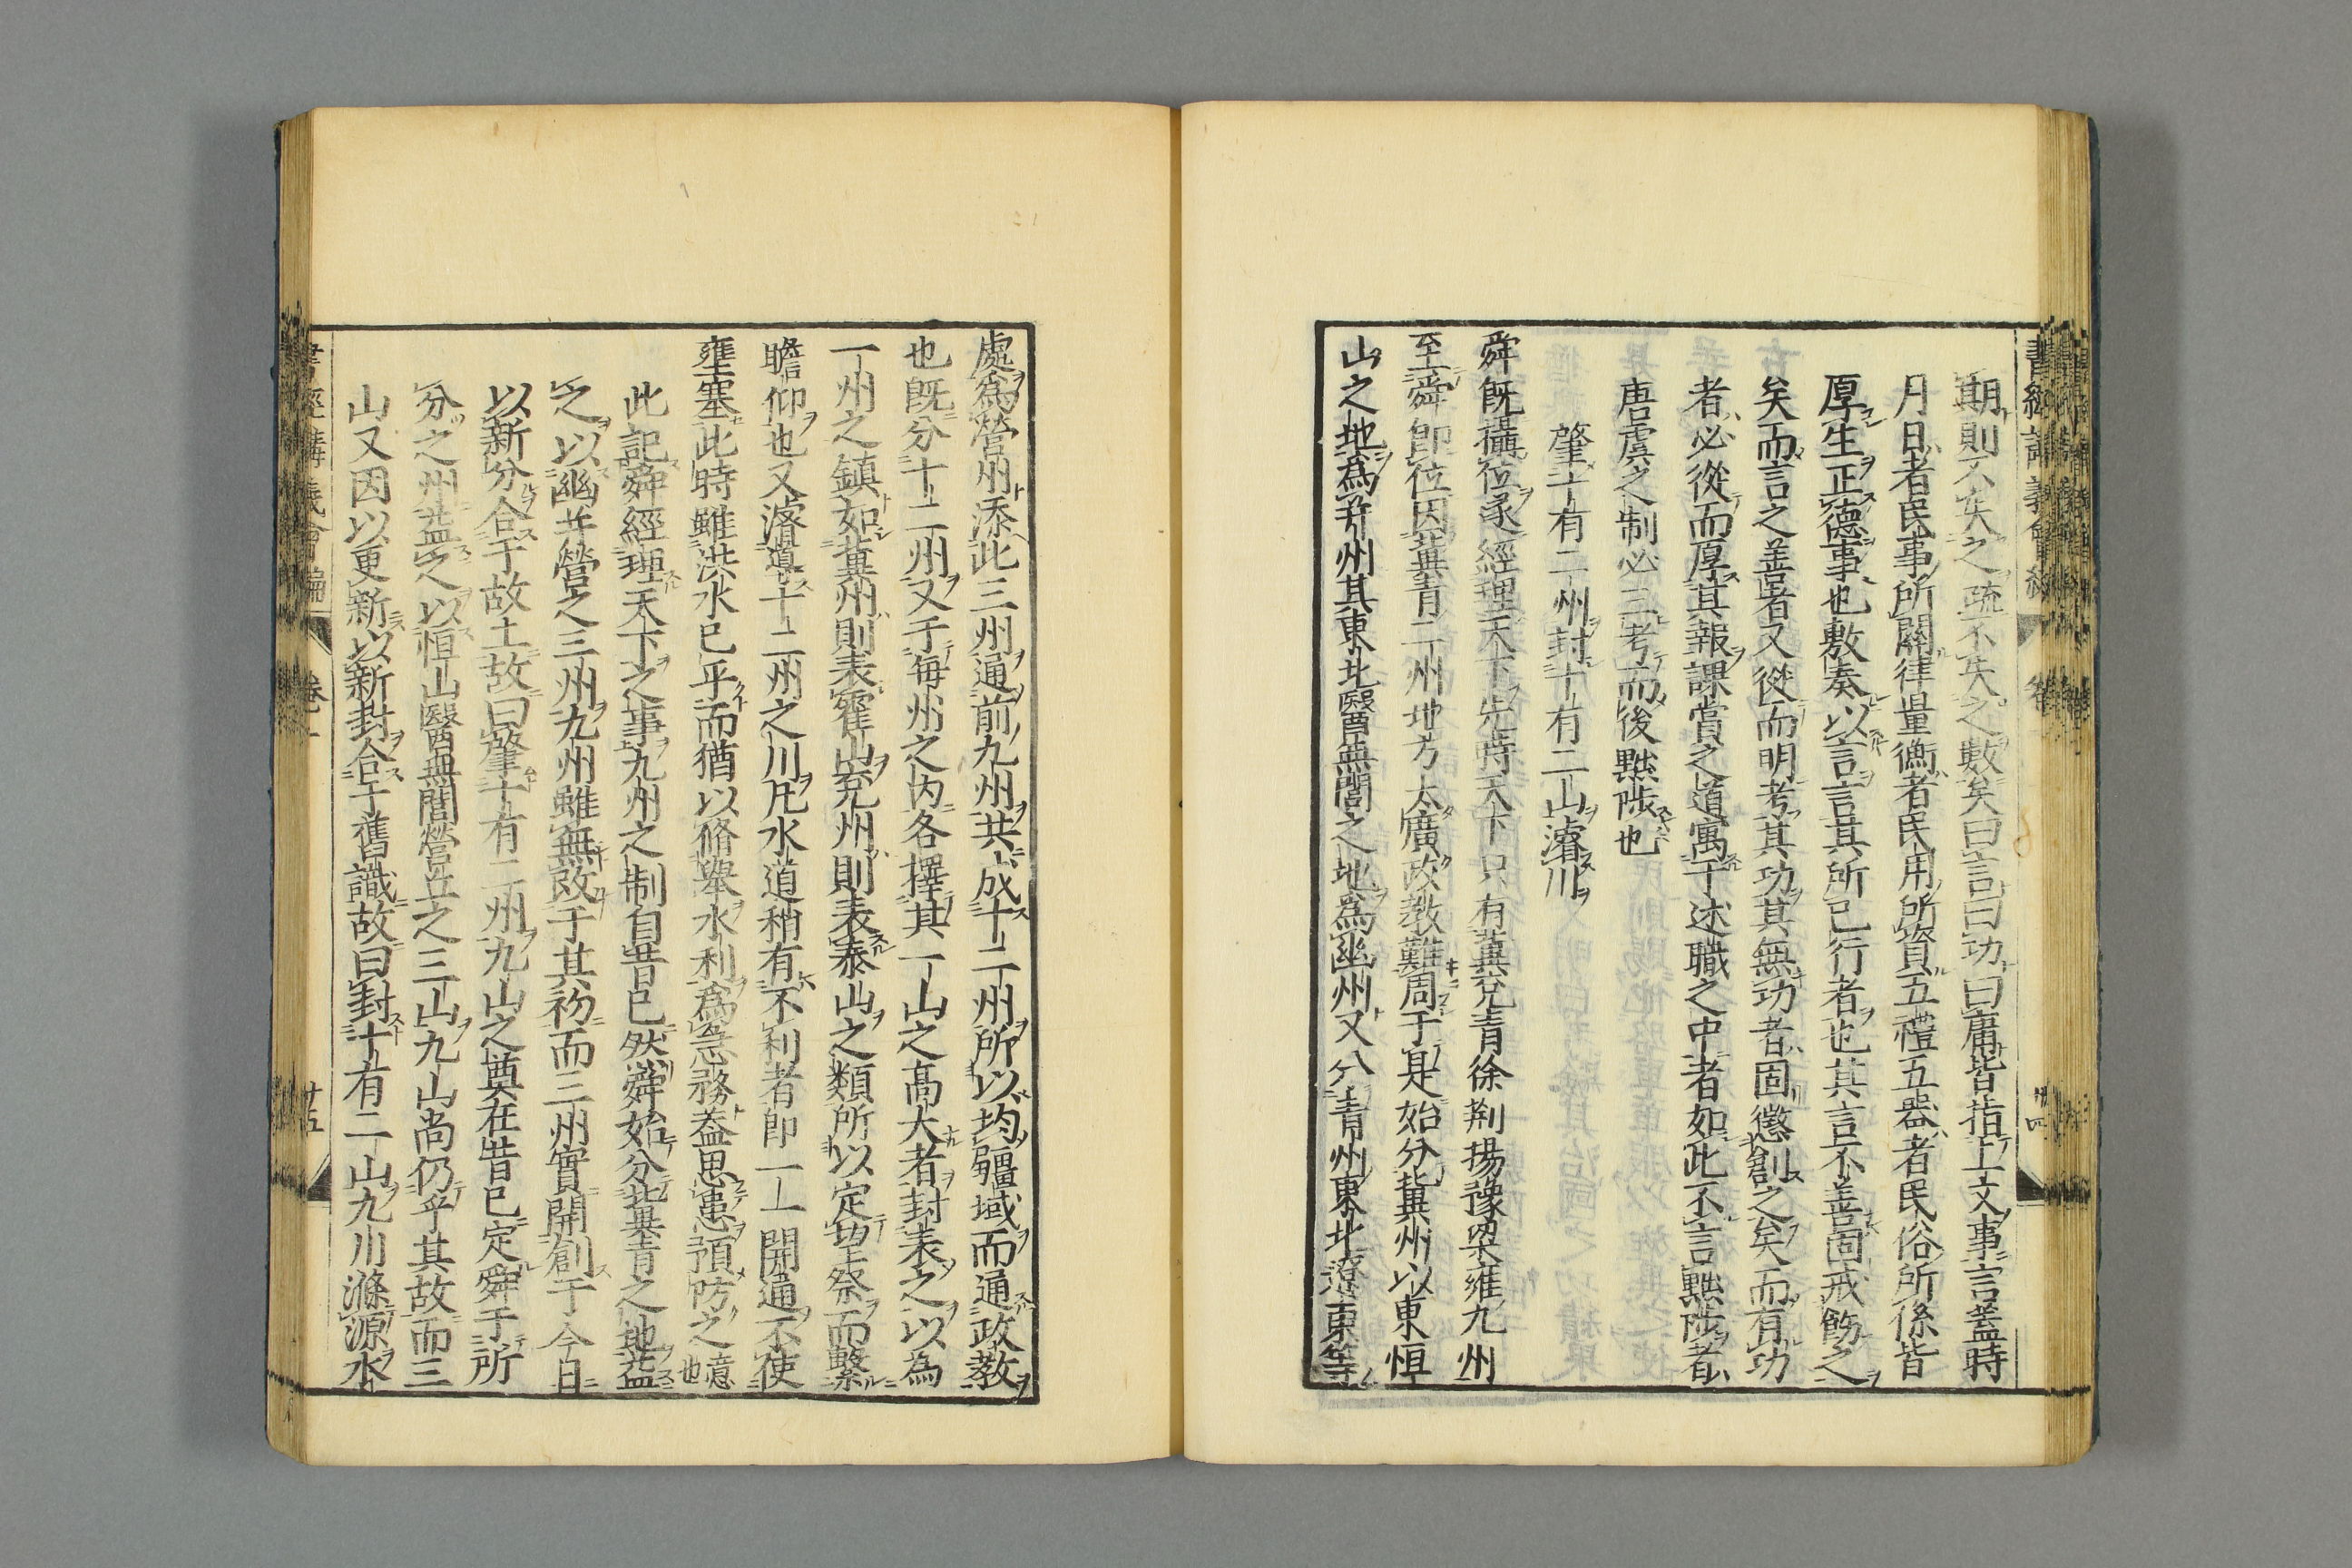 期則不失之疏不失之數矣曰言曰功曰庸皆指上文事言蓋時
月日者民事所關律量衡者民用所資五禮五器者民俗所係皆
厚生正德事也敷奏以言言其所已行者也其言不善固戒飭之
矣而言之善者又從而明考其功其無功者固懲創之矣而有功
者必從而厚其報課賞之道寓于述職之中者如此不言黜陟者
唐虞之制必三考而後黜陟也
肇十有二州封十有二山濬川
舜既攝位遂經理天下先時天下只有冀兗青徐荆揚豫梁雍九州
至舜即位因冀青二州地方太廣政教難周于是始分冀州以東恒
山之地為并州其東北醫無閭之地為幽州又分青州東北遼東等
處爲營州添此三州通前九州共成十二州所以均疆域而通政教
也既分十二州又于每州之内各擇其一山之高大者封表之以為
一州之鎮如冀州則表霍山兗州則表泰山之類所以定望祭而繫
瞻仰也又濬導十二州之川凡水道稍有不利者即一一開通不使
壅塞此時雖洪水已平而猶以脩舉水利為急務蓋思患預防之意也
此記舜經理天下之事九州之制自昔已然舜始分冀青之地益
之以幽并營之三州九州雖無改于其初而三州實開創于今日
以新分合于故土故曰肇十有二州九山之奠在昔已定舜于所
分之州益之以恒山醫無閭營丘之三山九山尚仍乎其故而三
山又因以更新以新封合于舊識故曰封十有二山九川滌源水
書經講義會編 卷一 廿五